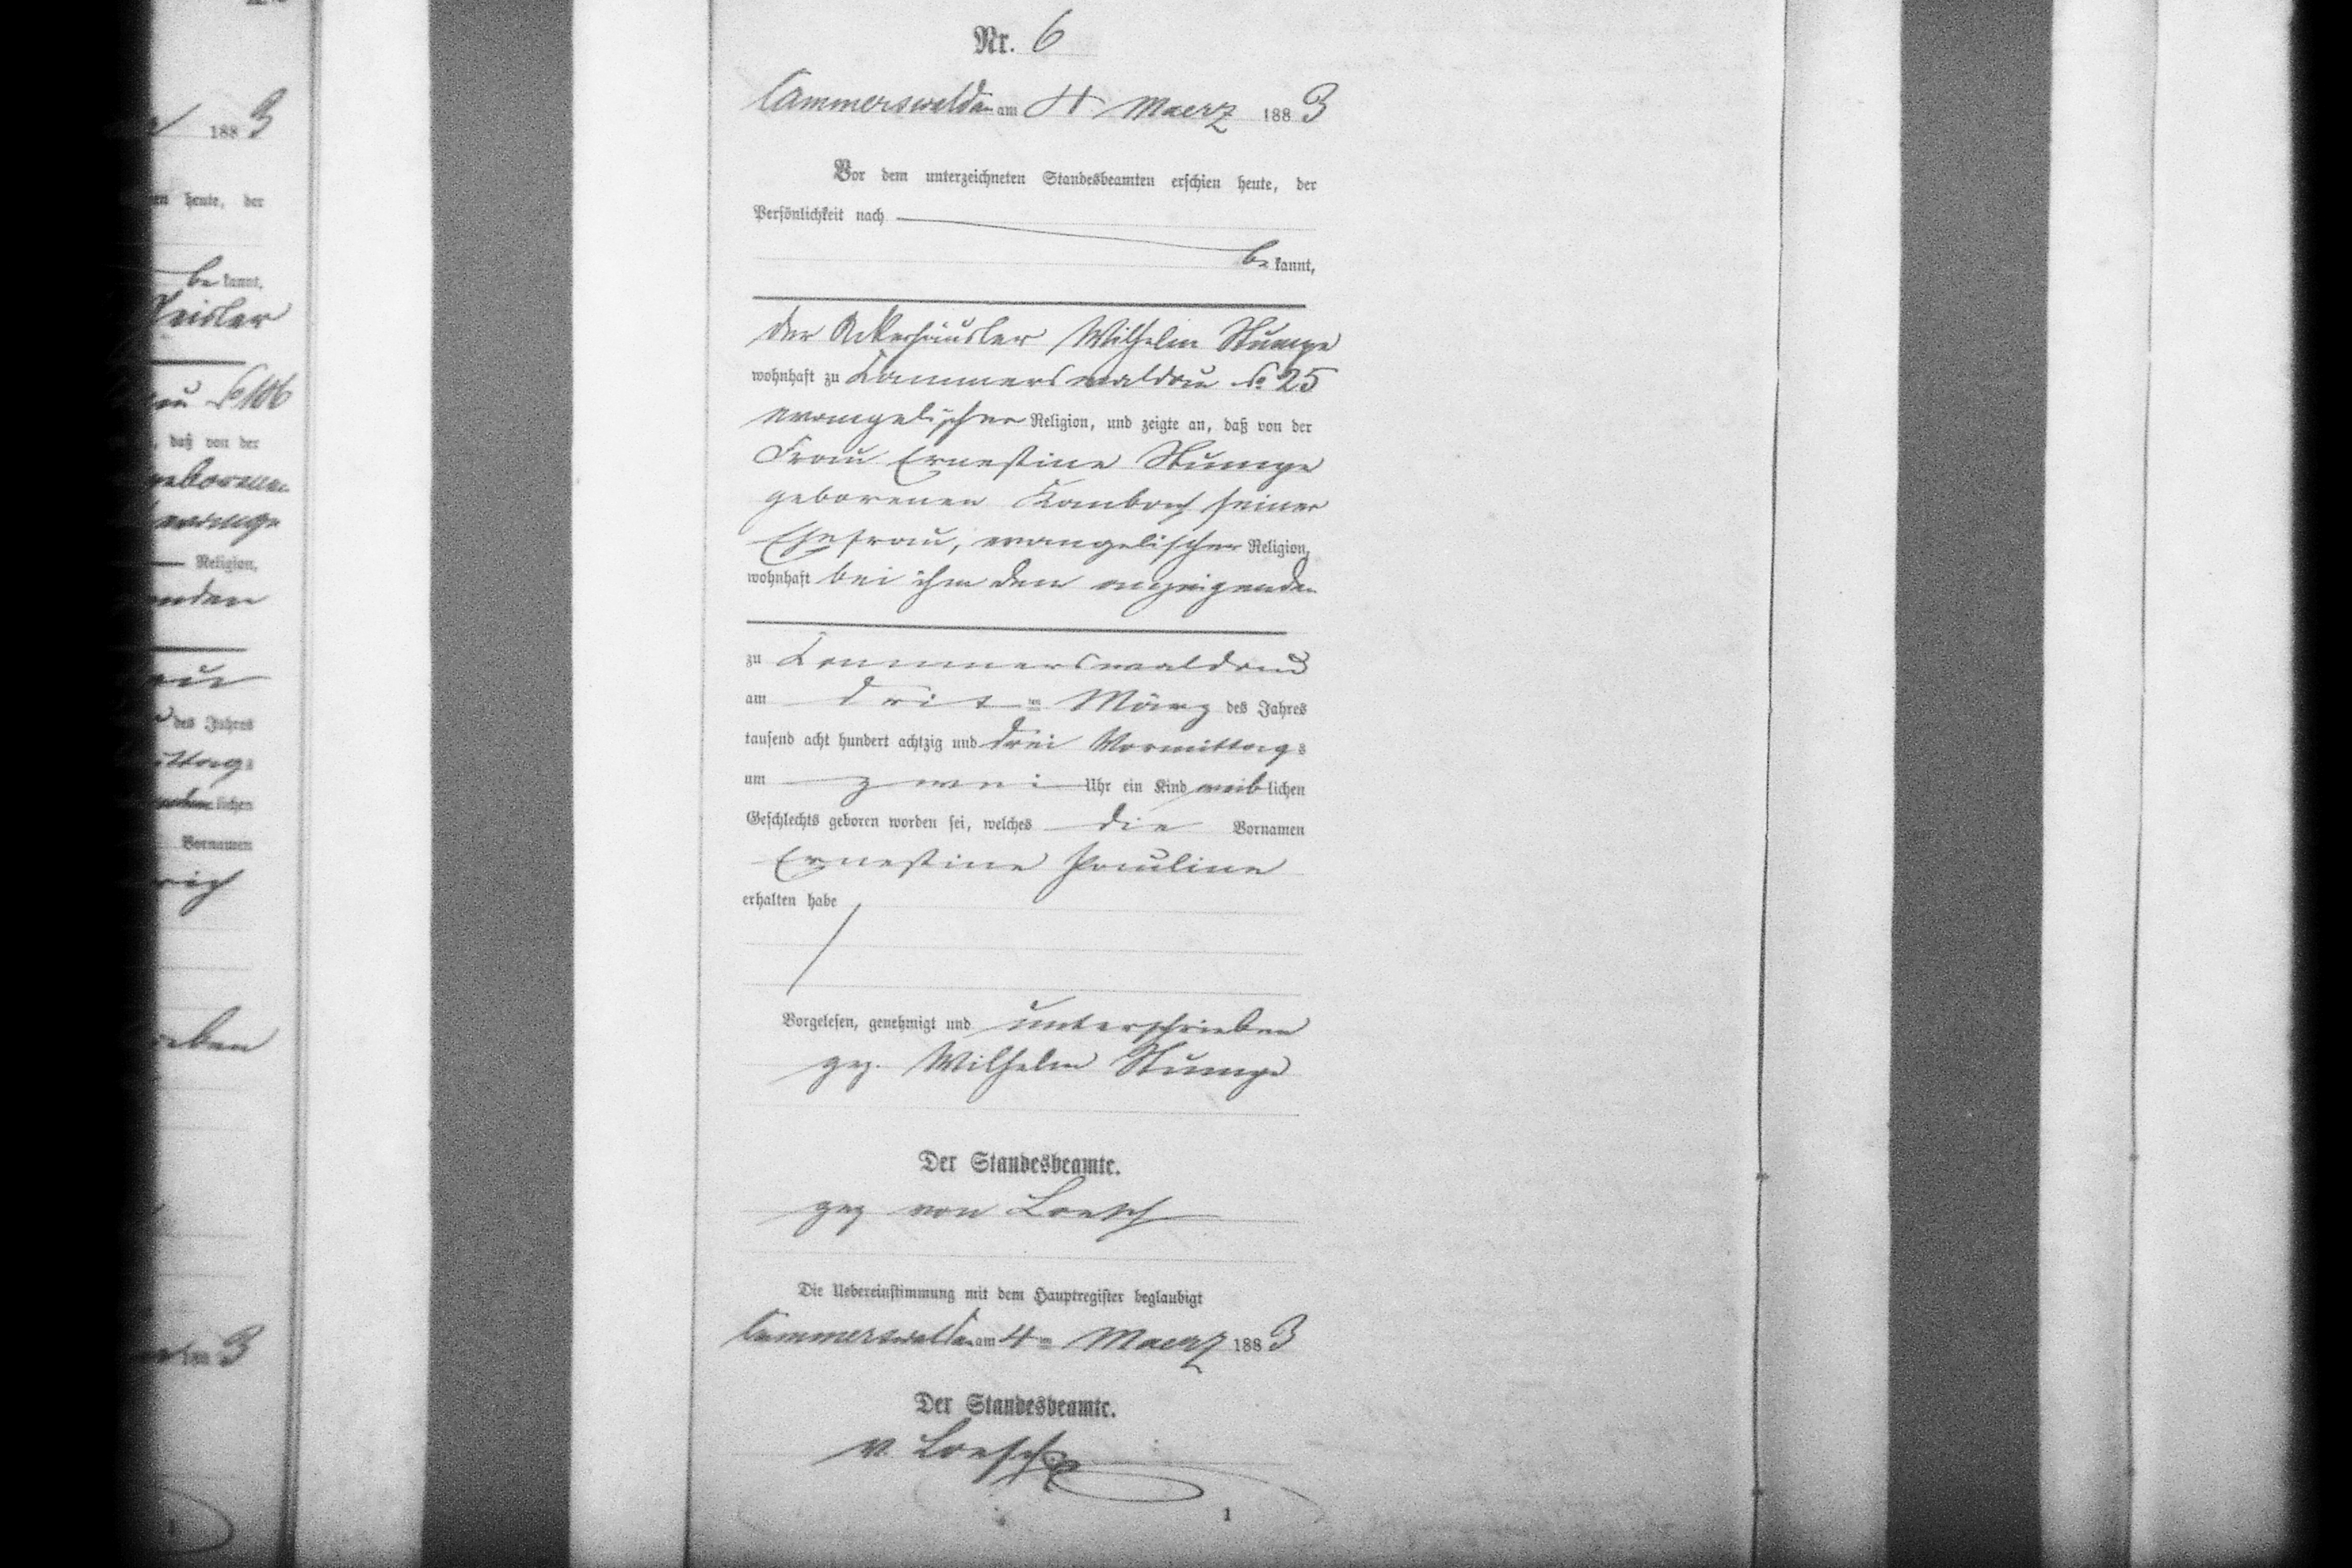 188 3
en heute, der
be kannt,
Nr. 6
Cammerswaldau am 4 Maerz 188 3
Vor dem unterzeichneten Standesbeamten erschien heute, der
Persönlichkeit nach
be kannt,
der Ackerhäusler Wilhelm Stumpe
wohnhaft zu Kammerswaldau No 25
evangelischer Religion, und zeigte an, daß von der
Frau Ernestine Stumpe
geborenen Kambach seiner
Ehefrau, evangelischer Religion,
wohnhaft bei ihm dem anzeigenden
zu Kammerswaldau
am dritten März des Jahres
tausend acht hundert achtzig und drei Vormittags
um zwei Uhr ein Kind weiblichen
Geschlechts geboren worden sei, welches die Vornamen
Ernestine Pauline
erhalten habe
Vorgelesen, genehmigt und unterschrieben
gez. Wilhelm Stumpe
Der Standesbeamte.
gez von Loesch
Die Uebereinstimmung mit dem Hauptregister beglaubigt
Cammerswaldau am 4ten Maerz 188 3
Der Standesbeamte.
v. Loesch
1